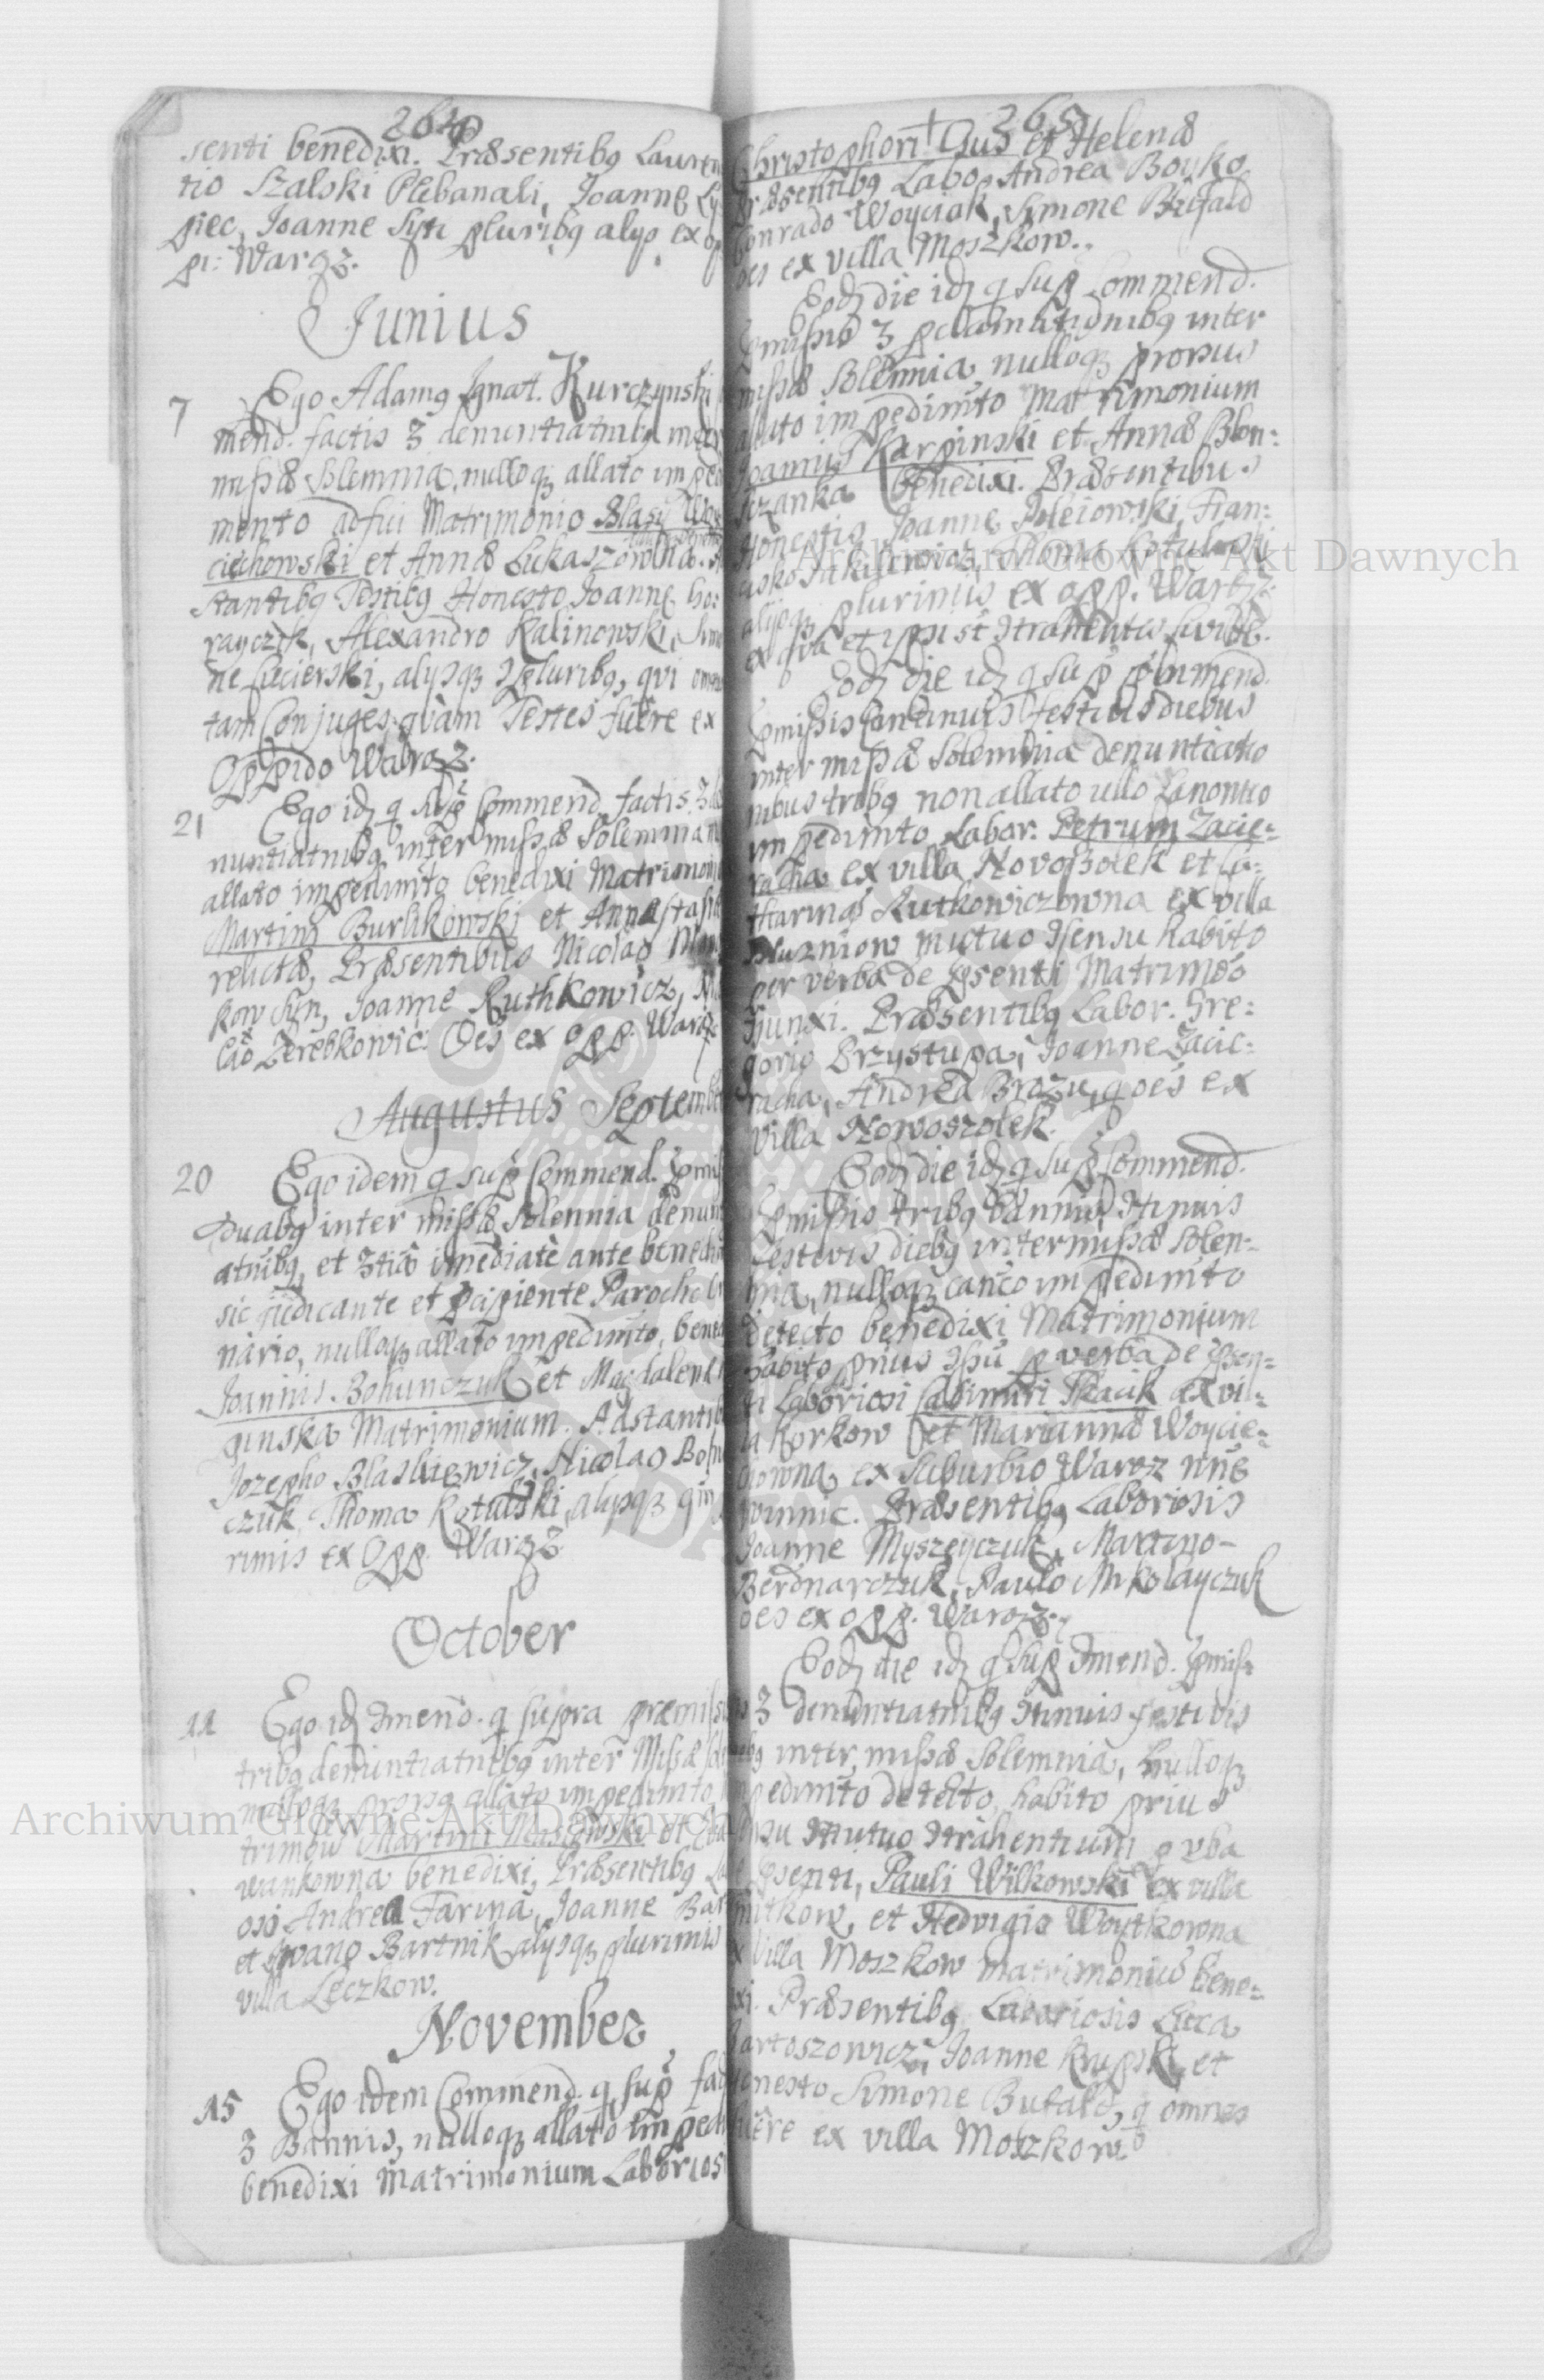 264
senti benedixi. Præsentibq Lauren
tio Szalski Plebanali, Joanne Ly
piec, Joanne Syn pluribq alyo ex op
pi: Waręz.
Junius
7 Ego Adamq Ignat. Kurczynski
mend. factis 3 denuntiatnibq inter
missæ Solemnia, nulloqz allato impedi
mento adfui Matrimonio Blasÿ Woy
ciechowski et Annæ Lukaszowna.
stantibq Testibq Honesto Joanne ho:
rayczek, Alexandro Kalinowski, Simo
ne Sucierski, alysqz pluribq, qvi omn
tam Conjuges qvam Testes fuere ex
Oppido Waręz.
21 Ego idz q sup Commend. factis 3 de
nuntiatnibq inter missæ Solemnia n
allato impedimto benedixi Matrimoni
Martini Burlikowski et Annastasiæ
relictæ, Præsentibus Nicolao
kow Syn, Joanne Ruthkowicz,
lao Zerebkowic: Oes ex opp. Waręz
Augustus Septembe
20 Ego idem q sup Commend. pmis
Duabq inter missæ Solennia denun
atnibq, et 3tia imediate ante bened
sic judicante et pcipiente Parocho
nario, nulloqz allato impedimto, bened
Joannis Bohunczuk et Magdalenæ
ginska Matrimonium. Adstantib
Jozepho Blaskiewicz, Nicolao Bohu
czuk, Thoma Kotulski, alysqz
rimis ex Opp. Waręz
October
11 Ego idz Cmend. q supra præmiss
tribq denuntiatnibq inter Missæ sol
nulloqz prorsq allato impedimto
trimoiu Martini Maslowski et
wankowna benedixi, Præsentibq La
osis Andrea Farina, Joanne Bar
et Iwano Bartnik alysqz plurimis
villa Leczkow.
November
15 Ego idem Commend. q sup fac
3 Bannis, nulloqz allato impedi
benedixi Matrimonium Laborios
265
Christophori Gus et Helenæ
Præsentibq Labo. Andrea Boyko
Conrado Woyciak, Simone Bufald
oes ex villa Moszkow.
Eodz die idz q sup Commend.
pmissis 3 pclamationibq inter
missæ Solemnia nulloqz prorsus
allato impedimto Matrimonium
Joannis Karpinski et Annæ Blon:
szanka benedixi. Præsentibus
Honestis Joanne Fran:
cisko Jakubowicz, Thoma Kotulski
alysqz plurimis ex opp. Waręz.
ex qva et ipsi st Ctrahentes
Eodz die idz q sup Cmmend.
pmissis Continuis festivis diebus
inter missæ Solemnia denuntiatio
nibus tribq non allato ullo Canonico
impedimto Labor. Petrum Zacie=
racha ex villa Novosolek et Ca=
tharinæ Rutkowiczowna ex villa
Sluzniow mutuo Csensu habito
per verba de psenti Matrimoo
Cjunxi. Præsentibq Labor. Gre:
gorio Przystupa, Joanne Zacie:
racha, Andrea Brozu, q oes ex
villa Nowoszołek.
Eodz die idz q sup Commend.
pmissis tribq bannis Ctinuis
festivis diebq inter missæ Solen-
nia, nulloqz canco impedimto
detecto benedixi Matrimonium
habito prius Csu p verba de psen=
ti Laboriosi Casimiri Tkacik ex vi=
la horkow et Mariannæ Woycie=
chowna, ex suburbio Waręz nne
winnic. Præsentibq Laboriosis
Joanne Myszeyczuk, Martino-
Berdnarczuk, Paulo Mikolayczuk
oes ex opp. Waręz.
Eodz die idz q sup Cmend. pmis=
is 3 denuntiatnibq Ctinuis festivis
bq inter missæ Solemnia, nulloqz
impedimto detecto, habito prius
Csu mutuo Ctrahentium p vba
psenti, Pauli Wilkowski ex villa
mitkow, et Hedvigis Woytkowna
ex villa Moszkow matrimoniu bene=
ixi. Præsentibq Laboriosis Luca
Bartoszowicz, Joanne Krupski, et
honesto Simone Bufald, q omnes
fuere ex villa Moszkow
Archiwum Główne Akt Dawnych
Archiwum Główne Akt Dawnych